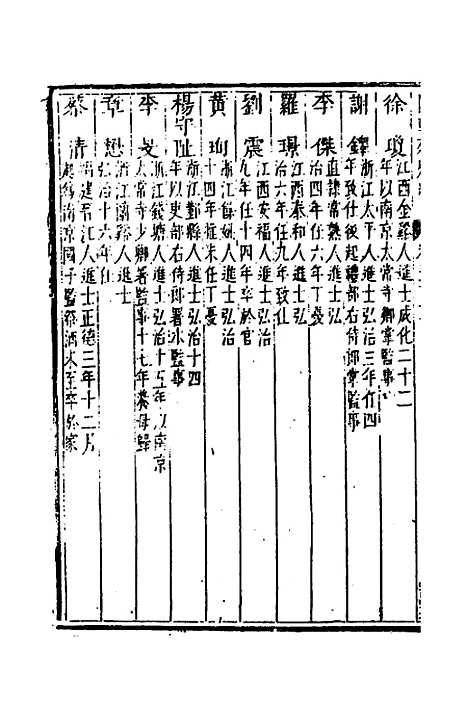 徐瓊 江西金谿人進士成化二十二
年以南京太常寺卿掌監事
謝鐸 浙江太平人進士弘治三年任四
年致仕後起禮部右侍郎掌監事
李傑 直隷常熟人進士弘
治四年任六年丁憂
羅璟 江西泰和人進士弘
治六年任九年致仕
劉震 江西安福人進士弘治
九年任十四年卒於官
黄珣 浙江餘姚人進士弘治
十四年任未任丁憂
楊守阯 浙江鄞縣人進士弘治十四
年以吏部右侍郎署本監事
李旻 浙江錢塘人進士弘治十五年以南京
太常寺少卿署監事十七年養母歸
章懋 浙江蘭谿人進士
弘治十六年任
蔡清 福建晋江人進士正德三年十二月
起爲南京國子監祭酒未至卒於家